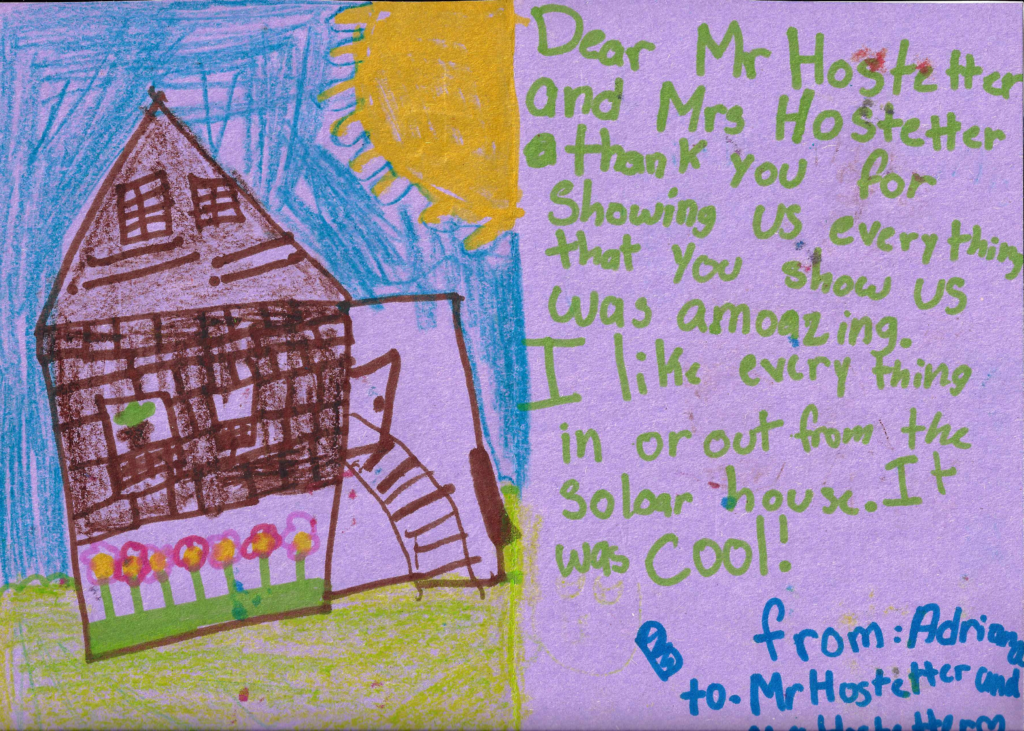 Dear Mr Hostetter
and Mrs Hostetter
thank you for
Showing us everything
that you show us
was amoazing.
I like every thing
in or out from the
soloar house. It
was cool!
from: Adriana
to. Mr Hostetter and